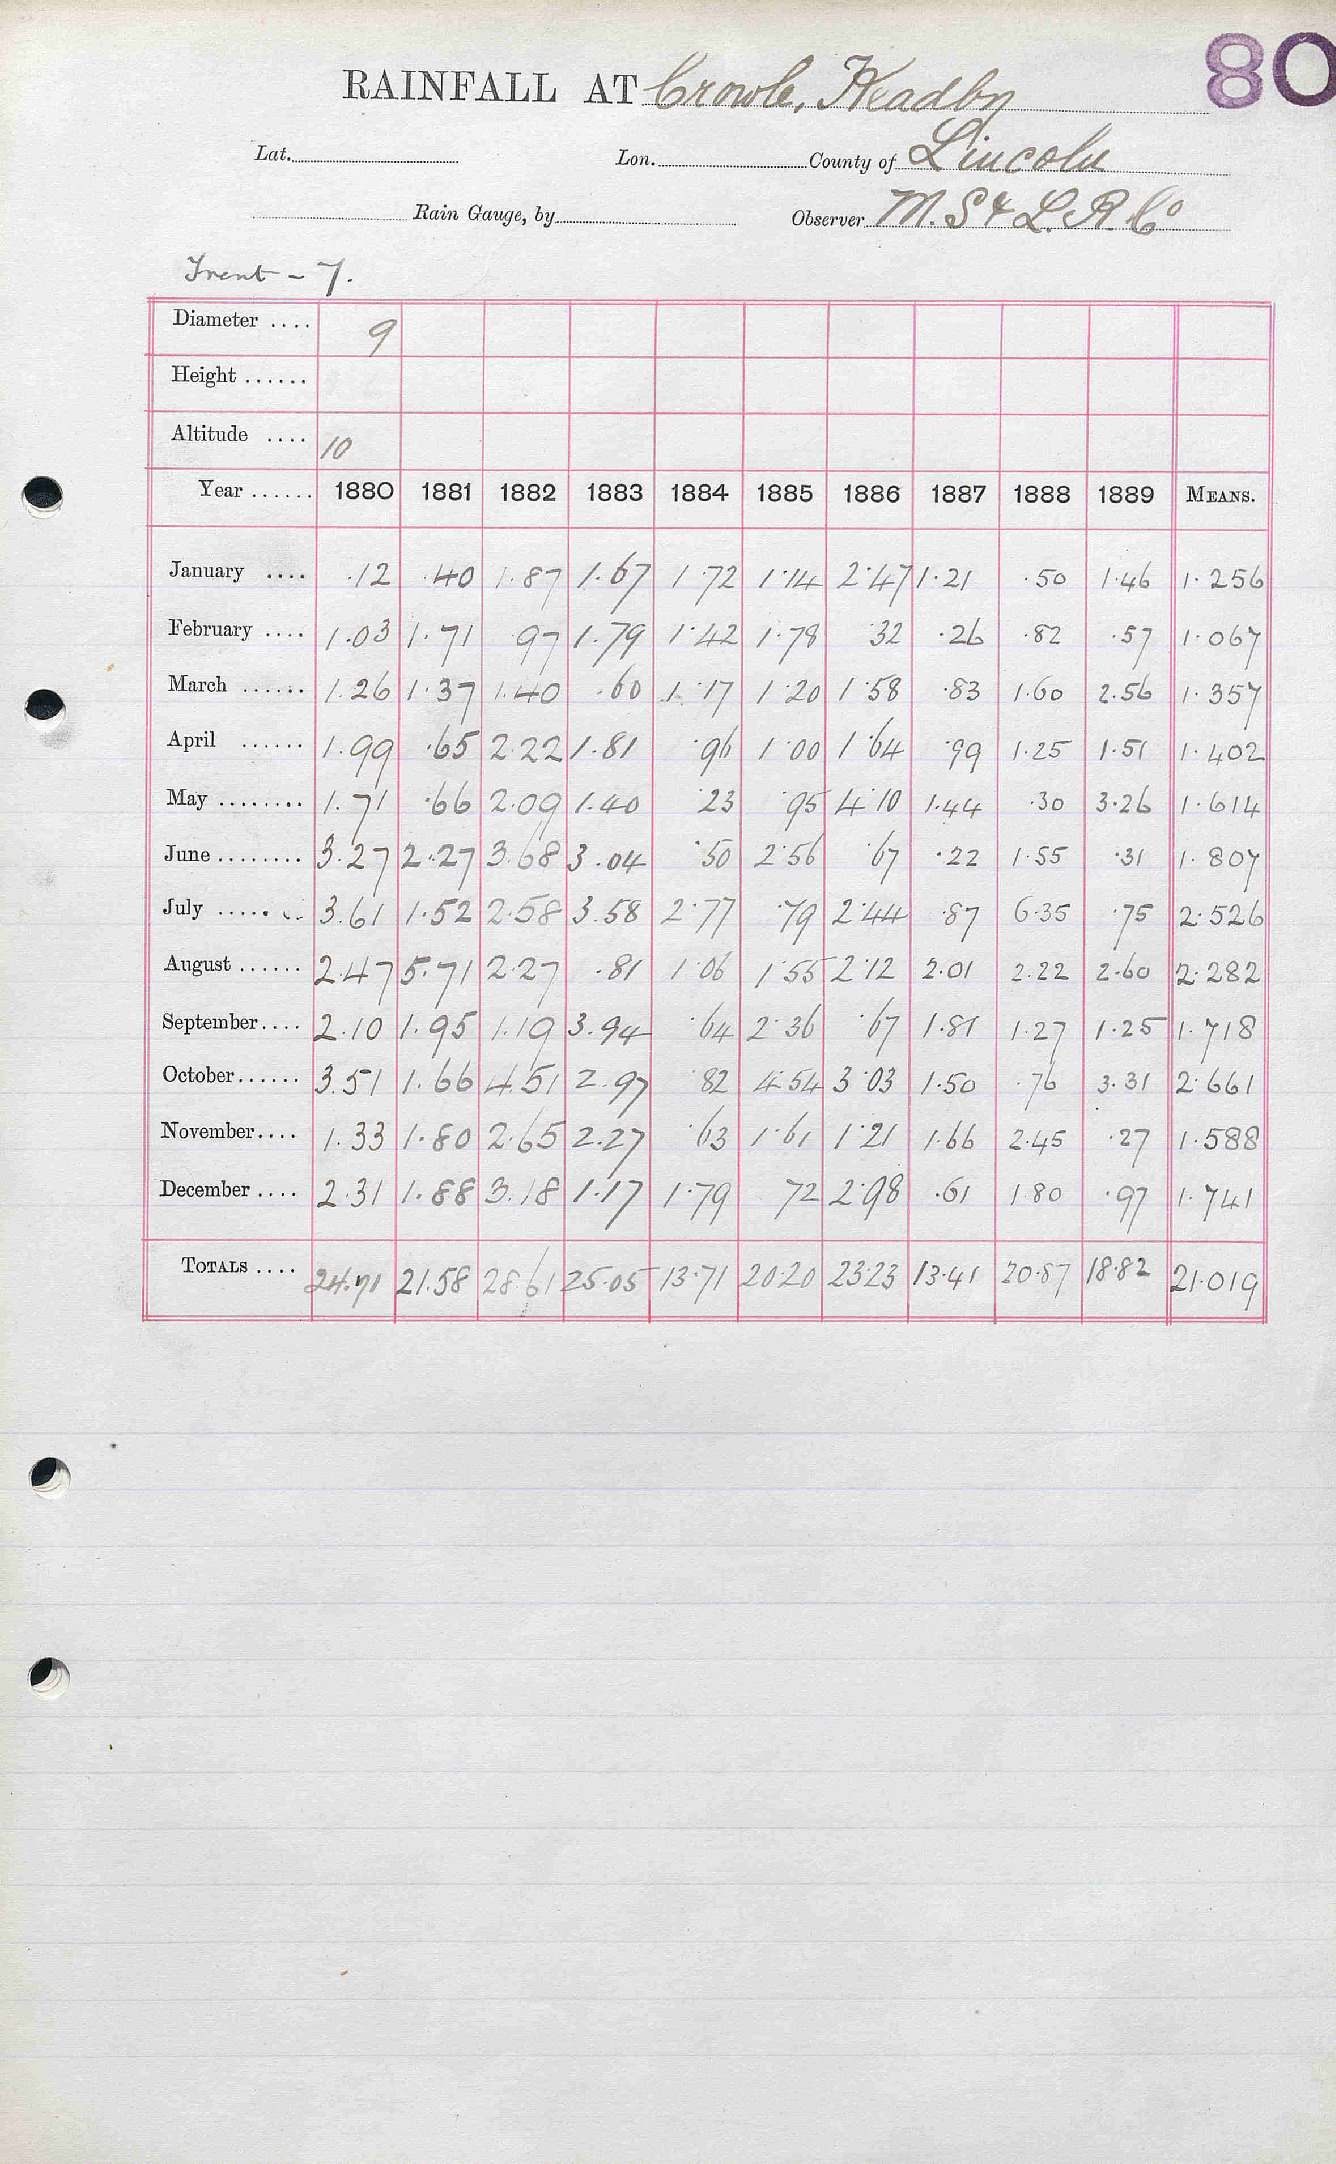 80
RAINFALL AT Crowle, Keadby
Lat. Lon. County of Lincoln
Rain Gauge, by Observer M. S & L. R. Co
Trent - 7.
Diameter .... 9
Height ......
Altitude .... 10
Year ...... 1880 1881 1882 1883 1884 1885 1886 1887 1888 1889 MEANS.
January .... .12 .40 1.87 1.67 1.72 1.14 2.47 1.21 .50 1.46 1.256
February .... 1.03 1.71 .97 1.79 1.42 1.78 .32 .26 .82 .57 1.067
March ...... 1.26 1.37 1.40 .60 1.17 1.20 1.58 .83 1.60 2.56 1.357
April ...... 1.99 .65 2.22 1.81 .96 1.00 1.64 .99 1.25 1.51 1.402
May ........ 1.71 .66 2.09 1.40 .23 .95 4.10 1.44 .30 3.26 1.614
June ........ 3.27 2.27 3.68 3.04 .50 2.56 .67 .22 1.55 .31 1.807
July ........ 3.61 1.52 2.58 3.58 2.77 .79 2.44 .87 6.35 .75 2.526
August ...... 2.47 5.71 2.27 .81 1.06 1.55 2.12 2.01 2.22 2.60 2.282
September.... 2.10 1.95 1.19 3.94 .64 2.36 .67 1.81 1.27 1.25 1.718
October...... 3.51 1.66 4.51 2.97 .82 4.54 3.03 1.50 .76 3.31 2.661
November.... 1.33 1.80 2.65 2.27 .63 1.61 1.21 1.66 2.45 .27 1.588
December .... 2.31 1.88 3.18 1.17 1.79 .72 2.98 .61 1.80 .97 1.741
TOTALS .... 24.71 21.58 28.61 25.05 13.71 20.20 23.23 13.41 20.87 18.82 21.019